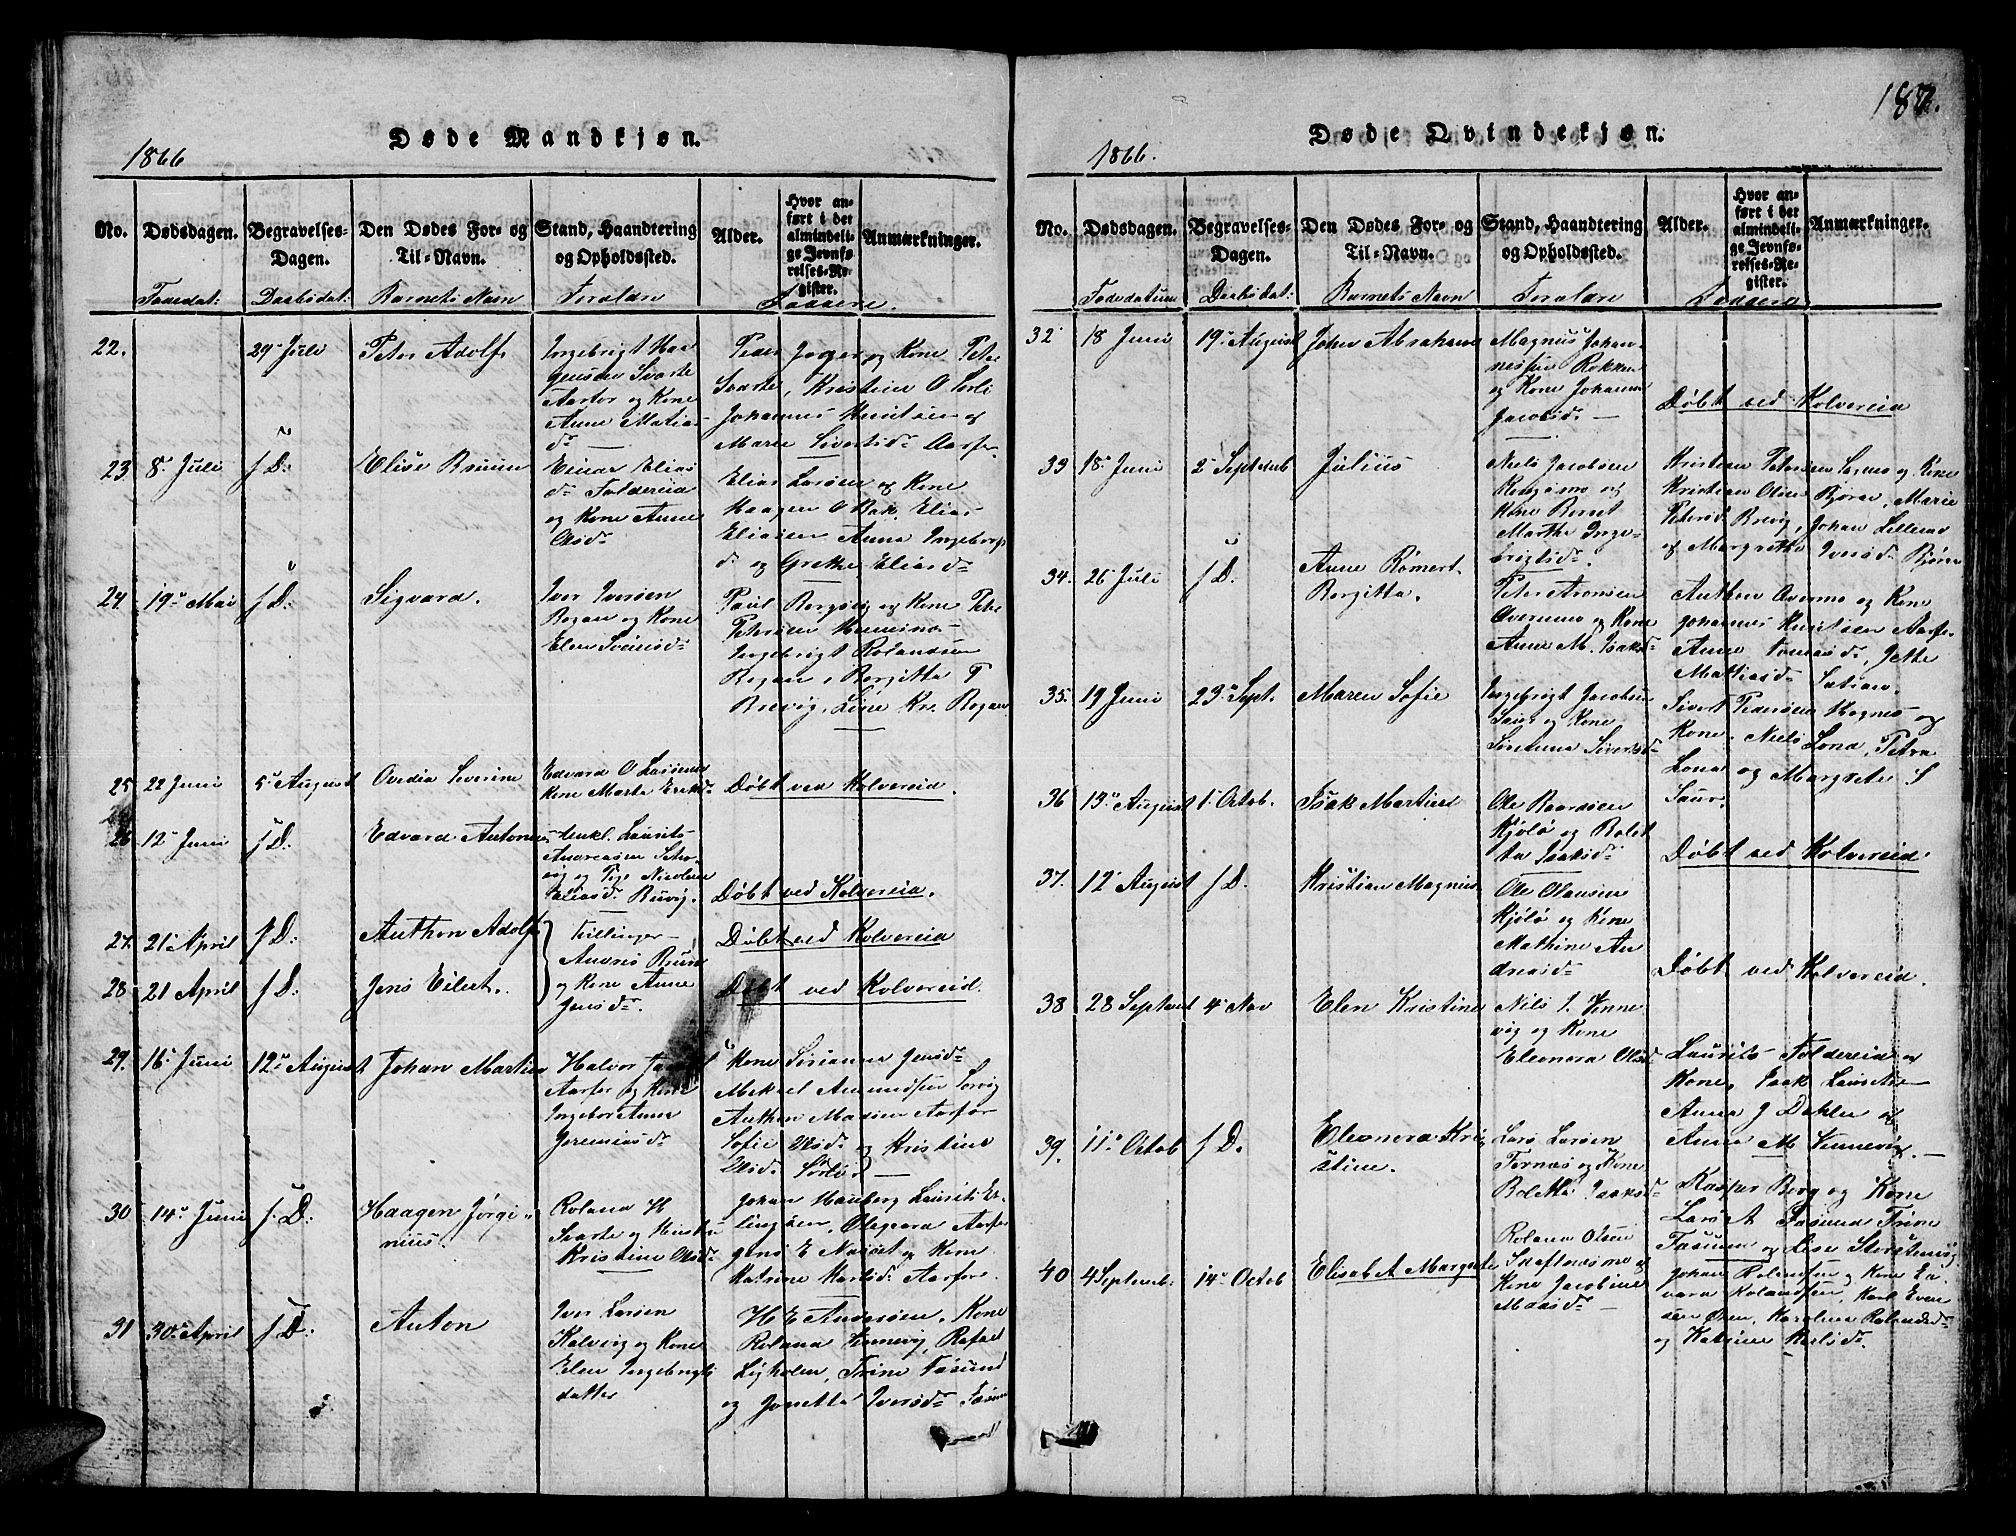 Døde Mandkjøn.
1866
No.
Dødsdagen.
Begravelses-
Dagen.
Den Dødes For- og
Til-Navn.
Stand, Haandtering
og Opholdssted.
Alder.
Hvor an-
ført i det
almindeli-
ge Jevnfø-
relses-Re-
gister.
Anmærkninger.
Fødedat: Daabsdat: Barnets Navn Forældre Faddere.
22. 29 Juli Peter Adolf
Ingebrigt Haa
gensen Svarte
Aarfor og Kone
Anne Matias
dr
Johannes Knutsen og
Maren Sivertsdr Aarfor
23. 8 Juli s D: Elise Bruun
Einar Elias
Foldereid
og Kone Anne
Olsdr
Elias Larsen og Kone
Haagen O Bak, Elias
Eliasen Anna Ingeborg
dr og Grethe Eliasdr
24. 19 Mai s D: Sigvard.
Iver Iversen
Bogan og Kone
Paul Borgsvig og Kone Petr
Petersen
Ingebrigt Rolandsen
Bogan, Borgitta P
Brevig, Line Kr. Bogan
25. 22 Juni 5 August Ovedia Severine
Edvard O
Kone Marta Eriksdr
Døbt ved Kolvereid.
26. 12 Juni s D: Edvard Antoneus
Ungkl. Laurits
Andreasen
vig og Pige Nicoline
Eliasdr Brevig.
Døbt ved Kolvereid.
27. 21 April s D: Anthon Adolf
Tvillinger
Andreas Bruun
Døbt ved Kolvereid
28 21 April s D: Jens Eilert.
og Kone Anne
Jensdr.
Døbt ved Kolvereid.
29. 16 Juni 12 August Johan Martin
Halvor
Aarfor og Kone
Ingebor Anna
Jeremiasdr
Kone Serianna Jensdr
Mekael Amundsen Sørvig
Anthon Madsen Aarfor
Sofie Olsdr og Kristine
Olsdr Sørli
30 14 Juni s. D: Haagen Jørgi-
nius.
Roland H
Svarte og Hustru
Kristine Olsdr
Johan Hauberg Laurits Er-
lingsen, Olegaard Aarfor
Jens E Næset og Kone
Katrine Karlsdr Aarfor
31 30 April s D: Anton
Iver Larsen
Kalvig og Kone
Elen Ingebrigts
datter
H E Andersen, Kone
Roland Kinnevig, Rafael
Ligholen, Trine Føsund
og Jonetta Iversdr
187.
Døde Qvindekjøn.
1866.
No.
Dødsdagen.
Begravelses-
Dagen.
Den Dødes For- og
Til-Navn.
Stand, Haandtering
og Opholdssted.
Alder.
Hvor an-
ført i det
almindeli-
ge Jevnfø-
relses-Re-
gister.
Anmærkninger.
Fødedatum Daabsdat: Barnets Navn Forældre Faddere
32 18 Juni 19 August Johan Abraham
Magnus Johan-
nessen Rokken
og Kone Johanna
Jacobsdr
Døbt ved Kolvereid
33 18 Juni 2 Septemb Julius
Niels Jacobsen
Kongsmo og
Kone Beret
Martha Inge-
brigtsdr.
Kristian Petersen
Kristian Olsen Bjøru, Marie
Petersd Brevig, Johan Lilleaas
og Margrethe Iversdr Bjøru
34. 26 Juli s D. Anne Rømert
Borgitta.
Peter Aronsen
Avermo og Kone
Anne M. Isaksdr
Anthon Avermo og Kone
Johannes Knutsen Aarfor
Anne Tomasdr, Jette
Mathiasdr
35. 19 Juni 23 Sept. Maren Sofie
Ingebrigt Jacobsen
Saur og Kone
Sivertsdr
Sivert Pedersen Hognes og
Kone, Niels Lona, Petra
Lona og Margrete S
Saur.
36 13 August 1 Octob. Isak Martin
Ole Baardsen
Kjølø og Bolet
ta Isaksdr
Døbt ved Kolvereid
37. 12 August s D. Kristian Magnus
Ole Olausen
Kjølø og Kone
Mathine An
dreasdr
Døbt ved Kolvereid.
38 28 Septemb 4 Nov Elen Kristine
Nils I. Kinne
vig og Kone
Eleonora Olsdr
Laurits Foldereid og
Kone, Isak
Anna J Dahlen og
Anna M Kinnevig.
39. 11 Octob s D. Eleonora Kri
stine.
Lars Larsen
Fornæs og Kone
Boletta Isaksdr
Kaspar Borg og Kone
Lars A Føsund Trine
Føsund og Lise
40 4 Septemb: 14 Octob Elisabet Margrete
Roland Olsen
Skaftnæsmo og
Kone Jacobine
Johan Rolandsen og Kone Ed
vard Rolandsen, Karl Even
sen Øien, Karoline Rolandsdr
og Katrine Karlsdr.